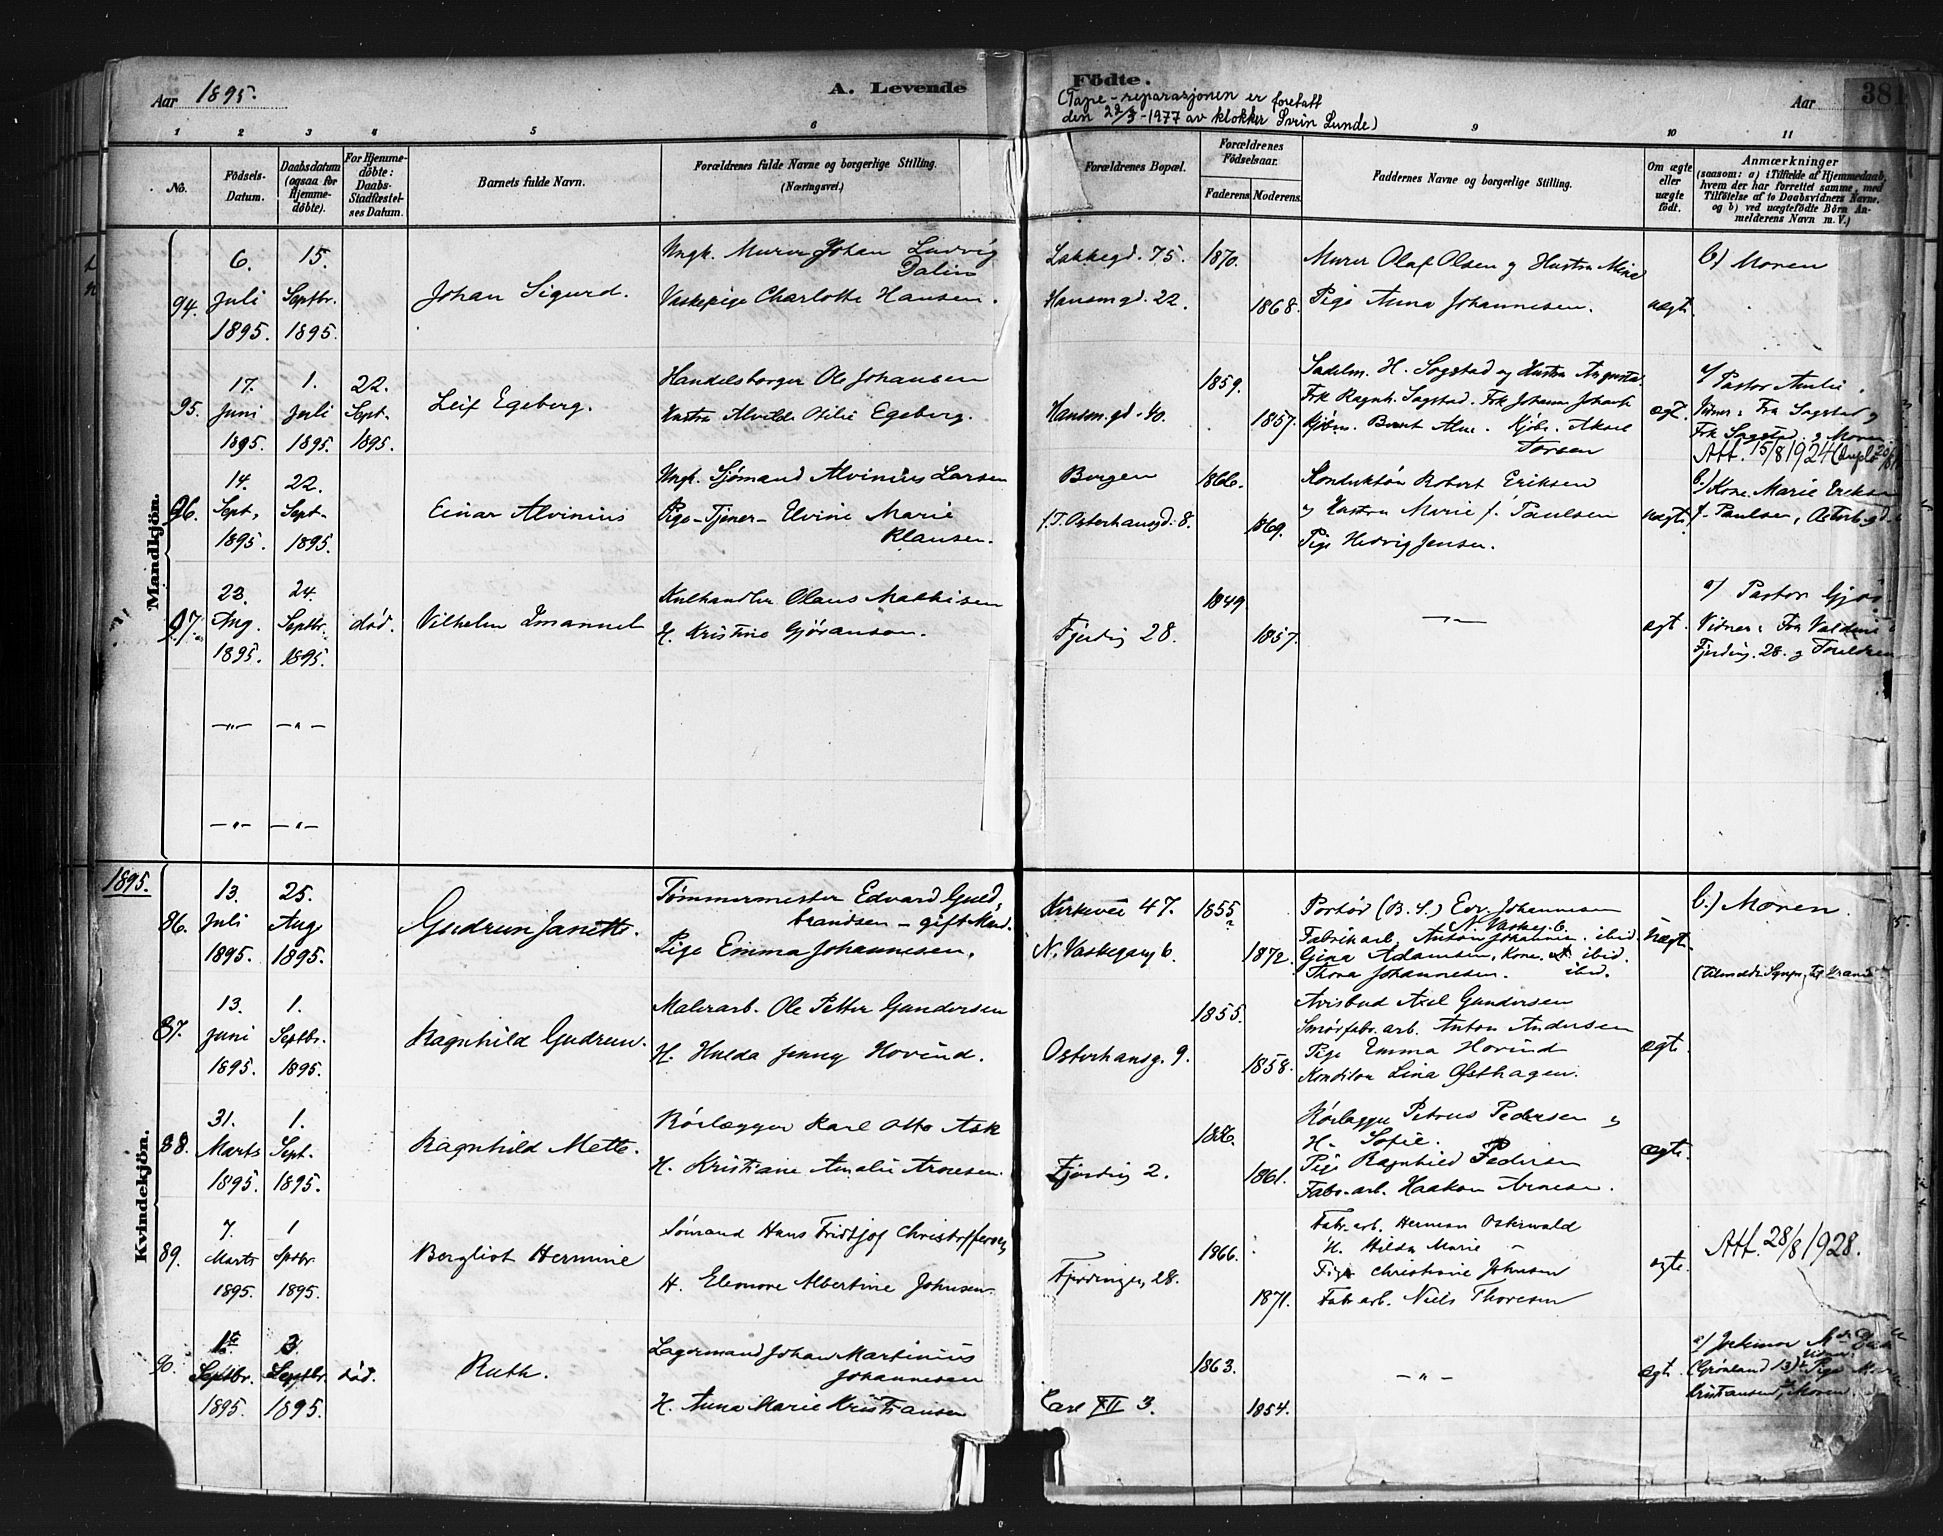 Aar 1895.
A. Levende Födte.
Aar
381
(Tape-reparasjonen er foretatt
den 22/3-1977 av klokker Svein Lunde)
1 2 3 4 5 6 9 10 11
No.
Födsels-Datum.
Daabsdatum (ogsaa for Hjemme-döbte).
For Hjemme-döbte: Daabs-Stadfæstel-ses Datum.
Barnets fulde Navn.
Forældrenes fulde Navne og borgerlige Stilling.
(Næringsvei.)
Forældrenes Bopæl.
Forældrenes Födselsaar.
Faderens Moderens.
Faddernes Navne og borgerlige Stilling.
Om ægte eller uægte födt.
Anmærkninger
(saasom: a) i Tilfælde af Hjemmedaab,
hvem der har forrettet samme, med
Tilföielse af to Daabsvidners Navne.
og b) ved uægtefödte Börn An-
melderens Navn m. V.)
Mandkjön.
94.
6. Juli 1895.
15. Septbr. 1895.
Johan Sigurd.
Ungk. Murer Johan Ludvig
Dalin
Vaskepige Charlotte Hansen.
Lakkegd. 75.
Hausmgd. 22.
1870.
1868.
Murer Olaf Olsen og Hustru
Pige Anna Johannesen.
uægt.
b) Moren
95.
17. Juni 1895.
1. Juli 1895.
22. Sept. 1895.
Leif Egeberg.
Handelsborger Ole Johansen
Hustru Alvilde Otilie Egeberg.
Hausm.gd. 40.
1859.
1857.
Sadelm. H. Sogstad og Hustru Augusta.
Frk Ragnh. Sogstad. Frk Johanne
Kjøbm. Kjøbm.
ægt.
a/ Pastor
Vidner: Fru Sogstad og
Frk Sogstad og Moren.
Att. 15/8 1924
96.
14. Sept. 1895.
22. Sept. 1895.
Einar Alvinius
Ungk. Sjømand Alvinius Larsen
Pige-Tjener- Elvine Marie
Klausen.
Bergen
f.T. Osterhausgd. 8.
1866.
1869.
Konduktør Robert Eriksen
og Hustru Marie f. Paulsen
Pige Hedvig Jensen.
uægt.
b.) Kone Marie Eriksen
f. Paulsen,
97.
23. Aug. 1895.
24. Septbr. 1895.
død.
Vilhelm Emanuel
Kulhandler Olaus Mathisen
H. Kristine Gjøranson.
Fjerding 28.
1849.
1857.
— " —
ægt.
a/ Pastor
Vidner: Fru
Fjerding. 28. og Foreldren
— " — — " —
— " — — " —
1895.
Kvindekjön.
86.
13. Juli 1895.
25. Aug. 1895.
Gudrun Janette.
Tømmermester Edvard Guld-
brandsen - gift Mand.
Pige Emma Johannesen.
Kirkevei 47.
N. Vaskegang 6.
1855
1872.
Portør (B.S.) Edv. Johannesen
N. Vaskeg. 6.
Fabrikarb. Anton Johannesen. ibid.
Gina Adamsen, Kone. ibid.
Thora Johannesen. ibid.
uægt.
b.) Moren.
87.
13. Juni 1895.
1. Septbr. 1895.
Ragnhild Gudrun.
Malerarb. Ole Petter Gundersen
H. Hulda Jenny Hovind.
Osterhausg. 9.
1855.
1858.
Avisbud Axel Gundersen
Smørfabr.arb. Anton Andersen
Pige Emma Hovind
Konditor Lina Østhagen.
ægt.
88.
31. Marts 1895.
1. Sept. 1895.
Ragnhild Mette.
Rørlægger Karl Otto Ask
H. Kristiane Amalie Arnesen.
Fjerding 2.
1861.
Rørlægger Petrus Pedersen og
H. Sofie.
Pige Ragnhild Pedersen
Fabr.arb. Haakon Arnesen.
ægte.
89.
7. Marts 1895.
1 Sptbr. 1895.
Bergliot Hermine
Sømand Hans Fridtjof Christoffersen
H. Eleonore Albertine Johnsen.
Fjerdingen 28.
1866.
1871.
Fabr.arb. Herman Osterwald
H. Hilda Marie —
Pige Christiane Johnsen
Fabr.arb. Niels Thoresen
ægte.
Att. 28/8 1928.
90.
1ste Septbr. 1895.
3. Septbr. 1895.
død.
Ruth.
Lagermand Johan Martinius
Johannesen
H. Anna Marie Kristiansen
Carl XII 3.
1863.
1854.
— " —
ægt.
a/ Jordmor
(Grønland 13) Pige
Kristiansen, Moren.